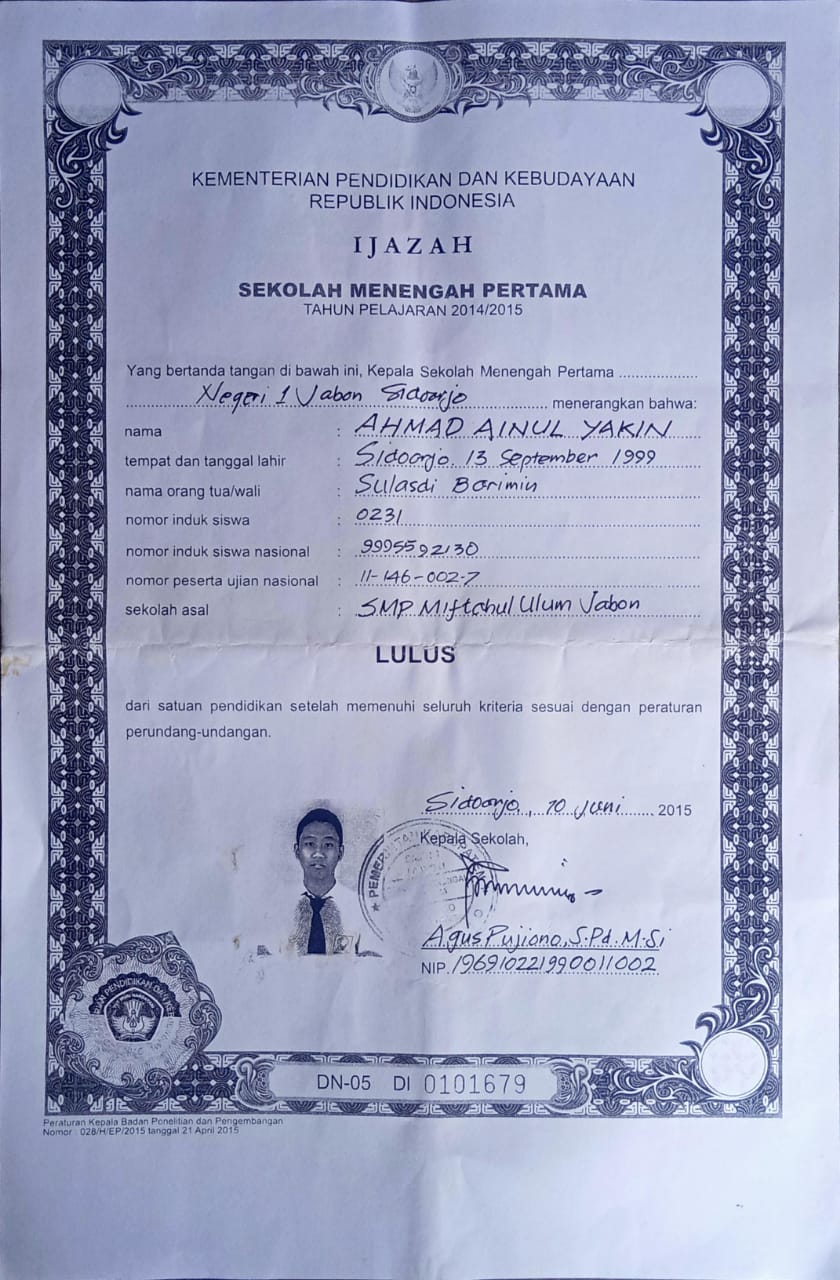 KEMENTERIAN PENDIDIKAN DAN KEBUDAYAAN
REPUBLIK INDONESIA
IJAZAH
SEKOLAH MENENGAH PERTAMA
TAHUN PELAJARAN 2014/2015
Yang bertanda tangan di bawah ini, Kepala Sekolah Menengah Pertama ..................
Negeri 1 Jabon Sidoarjo menerangkan bahwa:
nama : AHMAD AINUL YAKIN
tempat dan tanggal lahir : Sidoarjo, 13 September 1999
nama orang tua/wali : Sulasdi Barimin
nomor induk siswa : 0231
nomor induk siswa nasional : 9995592130
nomor peserta ujian nasional : 11-146-002-7
sekolah asal : SMP Miftahul Ulum Jabon
LULUS
dari satuan pendidikan setelah memenuhi seluruh kriteria sesuai dengan peraturan
perundang-undangan.
Sidoarjo, 10 Juni 2015
Kepala Sekolah,
Agus Pujiono, S.Pd. M.Si
NIP. 196910221990011002
DN-05 DI 0101679
Peraturan Kepala Badan Penelitian dan Pengembangan
Nomor : 028/H/EP/2015 tanggal 21 April 2015